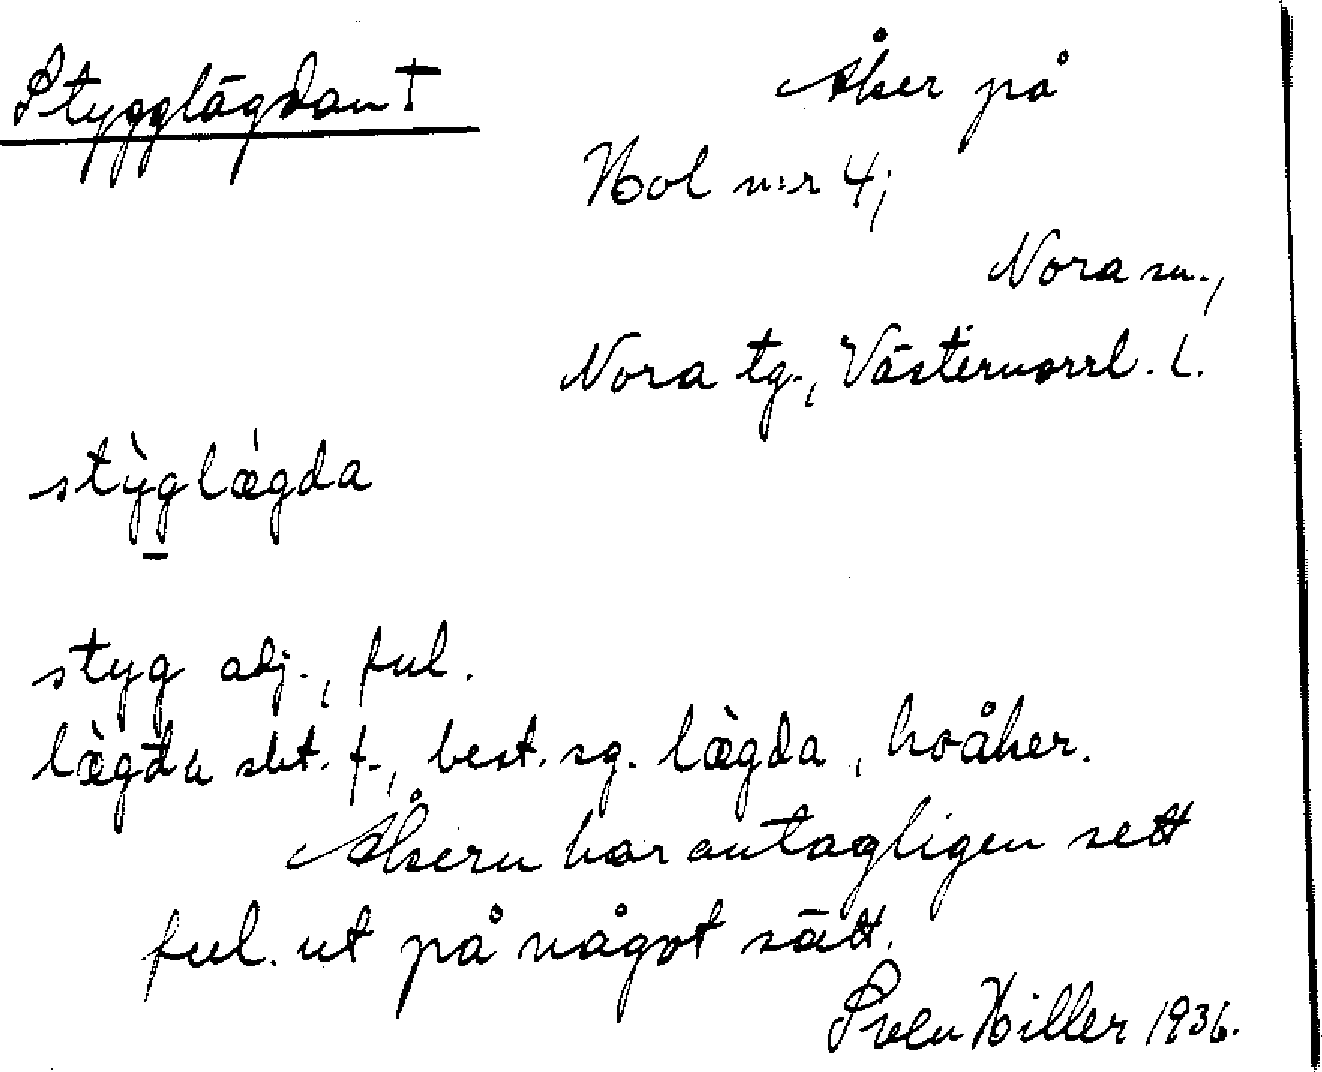 Stygglägdan †
Åker på
Hol n:r 4;
Nora sn.,
Nora tg., Västernorrl. l.
stỳglǽgda
styg adj., ful.
lægda sbt. f., best. sg. lægda, hoåker.
Åkern har antagligen sett
ful ut på något sätt.
Sven Hiller 1936.